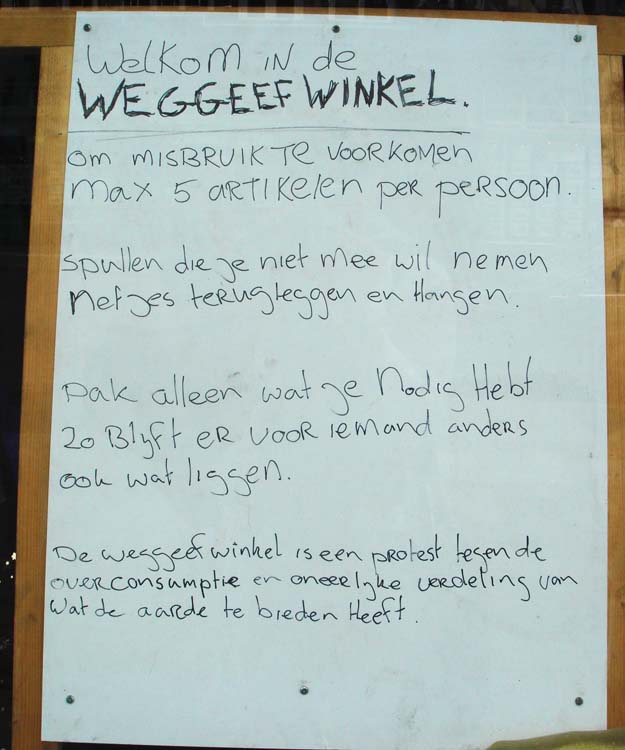 Welkom in de
WEGGEEF WINKEL.
om misbruik te voorkomen
max 5 artikelen per persoon.
spullen die je niet mee wil nemen
netjes terugleggen en Hangen.
Pak alleen wat je Nodig Hebt
zo Blijft er voor iemand anders
ook wat liggen.
De weggeefwinkel is een protest tegen de
overconsumptie en oneerlijke verdeling van
wat de aarde te bieden Heeft.